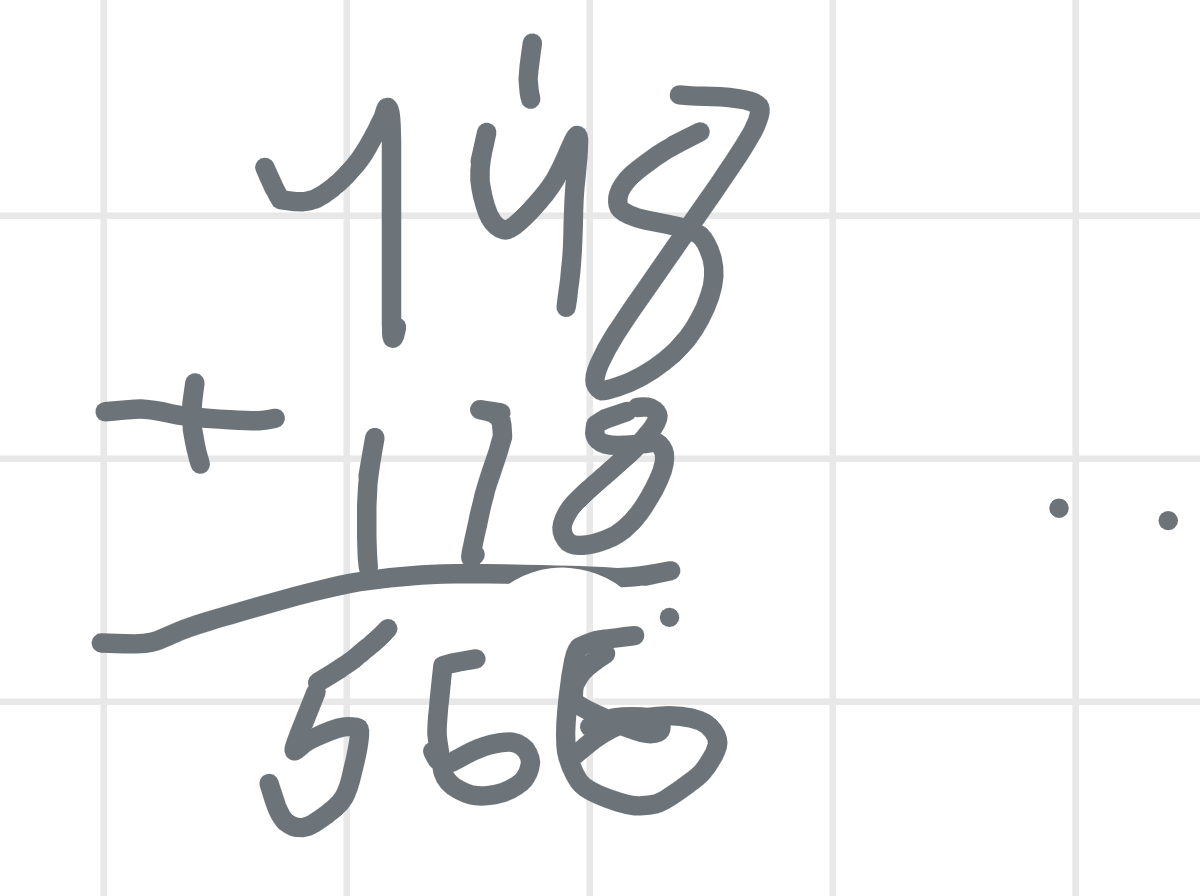 1
448
+ 118
566